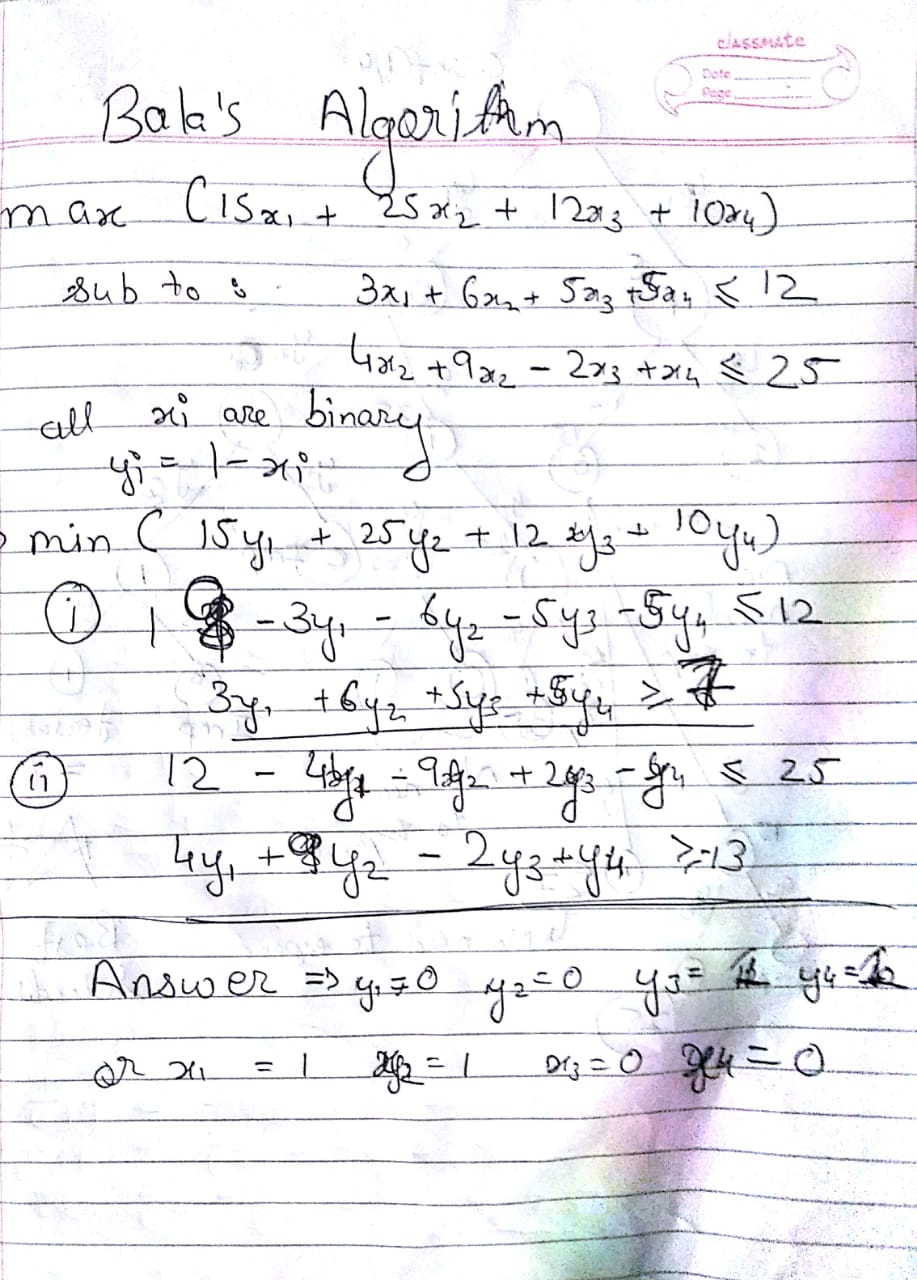 classmate
Date
Page
Bala's Algorithm
max (15x₁ + 25x₂ + 12x₃ + 10x₄)
sub to : 3x₁ + 6x₂ + 5x₃ + 5x₄ ≤ 12
4x₂ + 9x₂ - 2x₃ + x₄ ≤ 25
all xi are binary
yi = 1 - xi
min ( 15y₁ + 25y₂ + 12y₃ + 10y₄)
(i) 19 - 3y₁ - 6y₂ - 5y₃ - 5y₄ ≤ 12
3y₁ + 6y₂ + 5y₃ + 5y₄ ≥ 7
(ii) 12 - 4y₁ - 9y₂ + 2y₃ - y₄ ≤ 25
4y₁ + 9y₂ - 2y₃ + y₄ ≥ -13
Answer ⇒ y₁ = 0 y₂ = 0 y₃ = 1 y₄ = 1
or x₁ = 1 x₂ = 1 x₃ = 0 x₄ = 0